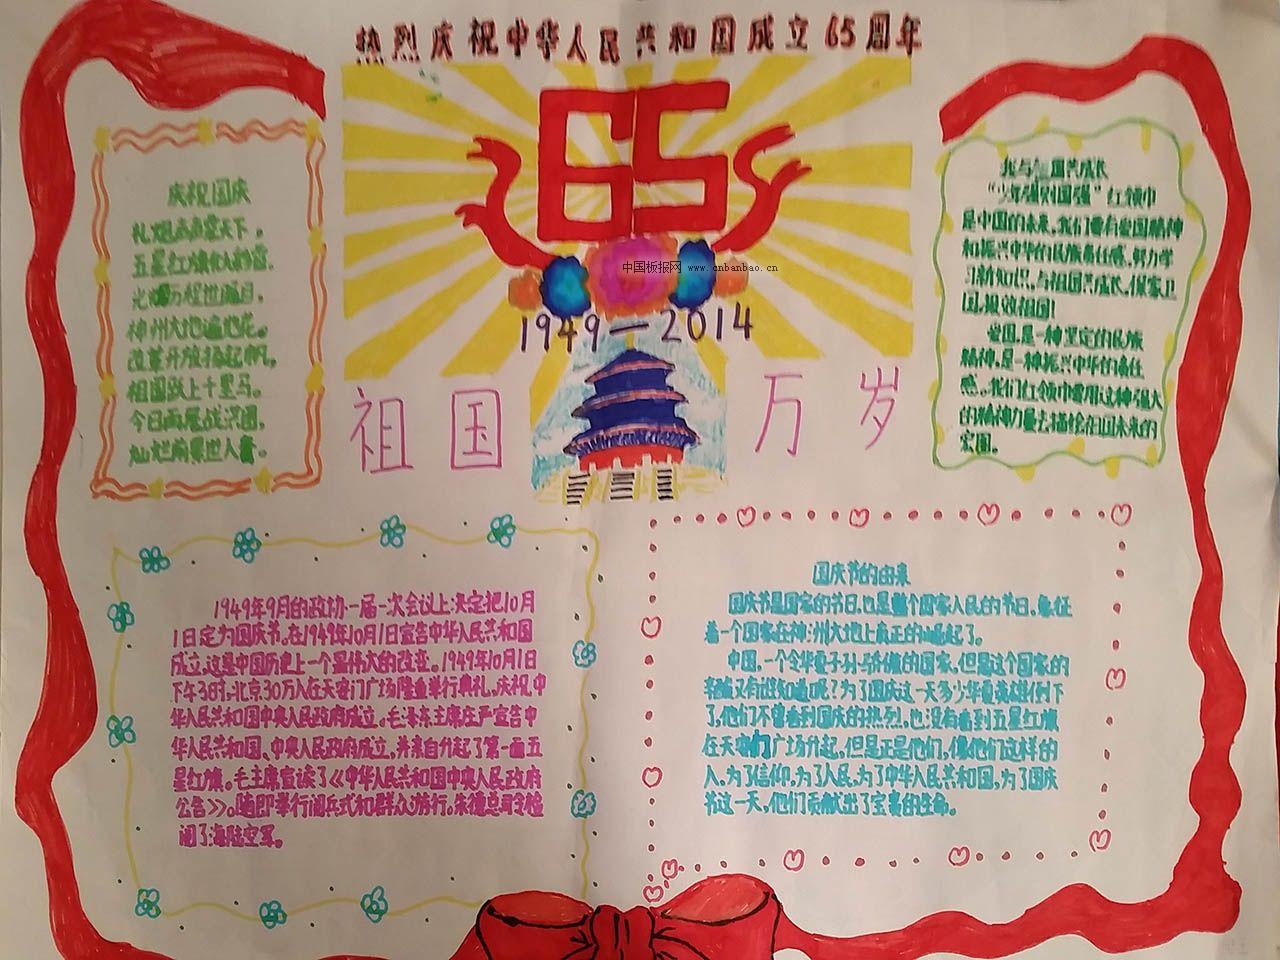 热烈庆祝中华人民共和国成立65周年
65
中国板报网 www.cnbanbao.cn
1949—2014
祖国
万岁
庆祝国庆
礼炮
五星红旗
历程世
神州大地遍地花。
改革开放扬起帆,
祖国跃上千里马。
今日画展战洪图,
灿烂前景世人夸。
我与祖国共成长
“少年强则国强”红领巾
是中国的未来,我们要有爱国精神
和振兴中华的民族责任感,努力学
习新知识,与祖国共成长,保家卫
国,报效祖国!
爱国,是一种坚定的民族
精神,是一种振兴中华的责任
感。我们红领巾需用这种强大
的精神力量去描绘祖国未来的
宏图。
1949年9月的政协一届一次会议上决定把10月
1日定为国庆节。在1949年10月1日宣告中华人民共和国
成立,这是中国历史上一个最伟大的改变。1949年10月1日
下午3时,北京30万人在天安门广场隆重举行典礼,庆祝中
华人民共和国中央人民政府成立。毛泽东主席庄严宣告中
华人民共和国、中央人民政府成立,并亲自升起了第一面五
星红旗。毛主席宣读了《中华人民共和国中央人民政府
公告》。随即举行阅兵式和群众游行。朱德总司令检
阅了海陆空军。
国庆节的由来
国庆节是国家的节日,也是整个国家人民的节日,象征
着一个国家在神州大地上真正的崛起了。
中国,一个令华夏子孙与骄傲的国家,但是这个国家的
辛酸又有谁知道呢?为了国庆这一天多少华夏英雄倒下
了,他们不曾看到国庆的热烈,也没有看到五星红旗
在天安门广场升起,但是正是他们,像他们这样的
人,为了信仰,为了人民,为了中华人民共和国,为了国庆
节这一天,他们贡献出了宝贵的生命。